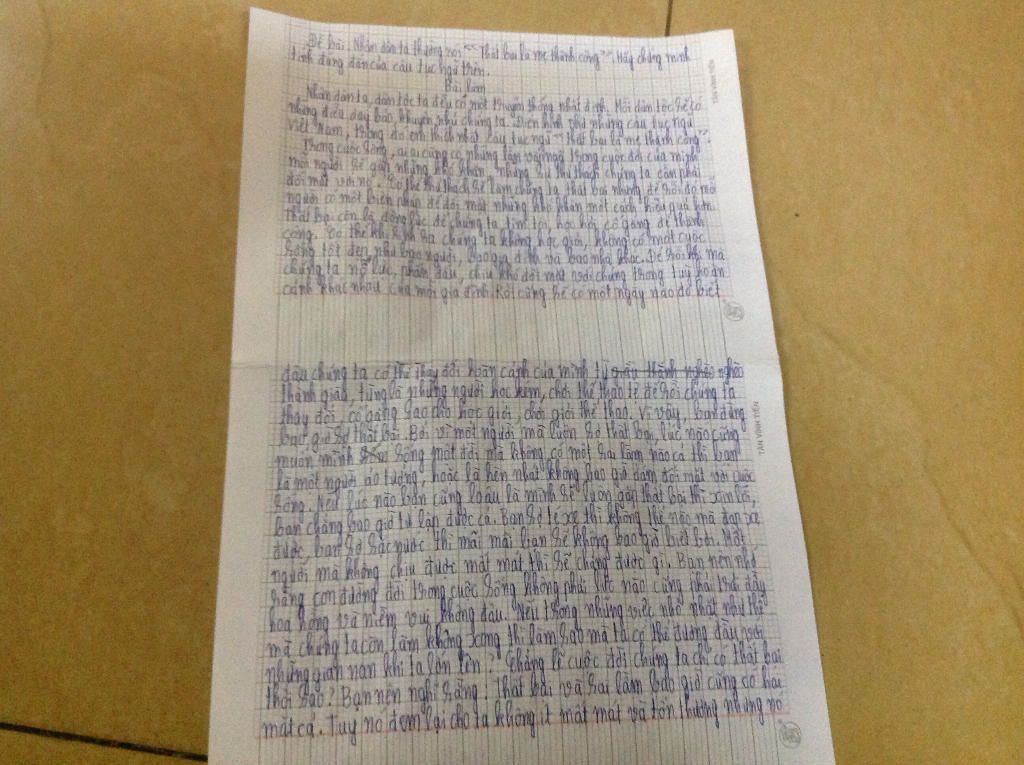 Đề bài. Nhân dân ta thường nói "Thất bại là mẹ thành công". Hãy chứng minh
tính đúng đắn của câu tục ngữ trên.
Bài làm
Nhân dân ta, dân tộc ta đều có một truyền thống nhất định. Mỗi dân tộc sẽ có
những điều dạy bảo, khuyên nhủ chúng ta. Điển hình như những câu tục ngữ
Việt Nam, trong đó em thích nhất câu tục ngữ "Thất bại là mẹ thành công".
Trong cuộc sống, ai ai cũng có những lần vấp ngã trong cuộc đời của mình
mỗi người sẽ gặp những khó khăn, những sự thử thách chúng ta cần phải
đối mặt với nó. Có thể thử thách sẽ làm chúng ta thất bại nhưng để rồi đó mỗi
người có một biện pháp để đối mặt những khó khăn một cách hiệu quả hơn.
Thất bại còn là động lực để chúng ta tìm tòi, học hỏi, cố gắng để thành
công. Có thể khi sinh ra chúng ta không học giỏi, không có một cuộc
sống tốt đẹp như bao người, bao gia đình và bao nhà khác. Để rồi khi mà
chúng ta nỗ lực, phấn đấu, chịu khó đối mặt với chúng trong tuỳ hoàn
cảnh khác nhau của mỗi gia đình. Rồi cũng sẽ có một ngày nào đó biết
đâu chúng ta có thể thay đổi hoàn cảnh của mình từ nghèo
thành giàu, từng là những người học kém, chơi thể thao tệ để rồi chúng ta
thay đổi, cố gắng sao cho học giỏi, chơi giỏi thể thao. Vì vậy, bạn đừng
bao giờ sợ thất bại. Bởi vì một người mà luôn sợ thất bại, lúc nào cũng
muốn mình sống một đời mà không có một sai lầm nào cả thì bạn
là một người ảo tưởng, hoặc là hèn nhát không bao giờ dám đối mặt với cuộc
sống. Nếu lúc nào bạn cũng lo âu là mình sẽ luôn gặp thất bại thì xin lỗi,
bạn chẳng bao giờ tự lập được cả. Bạn sợ té xe thì không thể nào mà đạp xe
được, bạn sợ sặc nước thì mãi mãi bạn sẽ không bao giờ biết bơi. Một
người mà không chịu được mất mát thì sẽ chẳng được gì. Bạn nên nhớ
rằng con đường đời trong cuộc sống không phải lúc nào cũng phải trải đầy
hoa hồng và niềm vui không đâu. Nếu trong những việc nhỏ nhặt như thế
mà chúng ta còn làm không xong thì làm sao mà ta có thể đương đầu với
những gian nan khi ta lớn lên? Chẳng lẽ cuộc đời chúng ta chỉ có thất bại
thôi sao? Bạn nên nghĩ rằng: Thất bại và sai lầm bao giờ cũng có hai
mặt cả. Tuy nó đem lại cho ta không ít mất mát và tổn thương nhưng nó
TÂN VĨNH TIẾN
TÂN VĨNH TIẾN